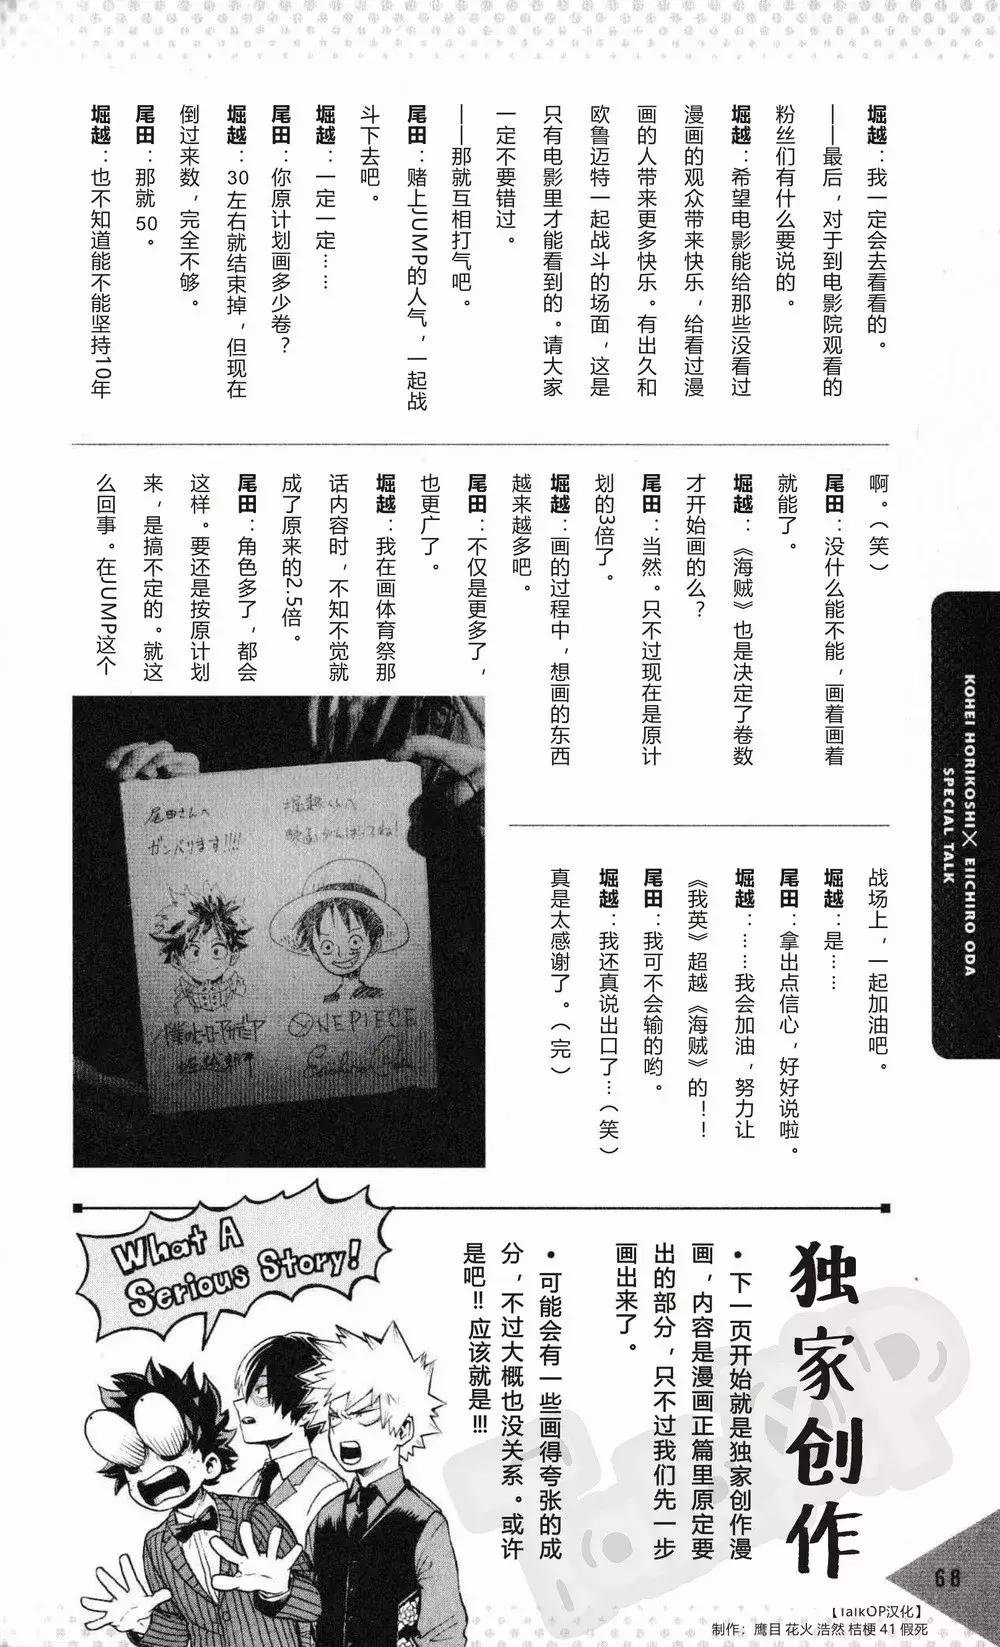 堀越：我一定会去看看的。
——最后，对于到电影院观看的
粉丝们有什么要说的。
堀越：希望电影能给那些没看过
漫画的观众带来快乐，给看过漫
画的人带来更多快乐。有出久和
欧鲁迈特一起战斗的场面，这是
只有电影里才能看到的。请大家
一定不要错过。
——那就互相打气吧。
尾田：赌上JUMP的人气，一起战
斗下去吧。
堀越：一定一定……
尾田：你原计划画多少卷？
堀越：30左右就结束掉，但现在
倒过来数，完全不够。
尾田：那就50。
堀越：也不知道能不能坚持10年
啊。（笑）
尾田：没什么能不能，画着画着
就能了。
堀越：《海贼》也是决定了卷数
才开始画的么？
尾田：当然。只不过现在是原计
划的3倍了。
堀越：画的过程中，想画的东西
越来越多吧。
尾田：不仅是更多了，
也更广了。
堀越：我在画体育祭那
话内容时，不知不觉就
成了原来的2.5倍。
尾田：角色多了，都会
这样。要还是按原计划
来，是搞不定的。就这
么回事。在JUMP这个
战场上，一起加油吧。
堀越：是……
尾田：拿出点信心，好好说啦。
堀越：……我会加油，努力让
《我英》超越《海贼》的！！
尾田：我可不会输的哟。
堀越：我还真说出口了…（笑）
真是太感谢了。（完）
KOHEI HORIKOSHI × EIICHIRO ODA
SPECIAL TALK
堀越くんへ
映画がんばってね！
ONEPIECE
尾田さんへ
ガンバります!!!!
僕のヒーローアカデミア
堀越耕平
独家创作
• 下一页开始就是独家创作漫
画，内容是漫画正篇里原定要
出的部分，只不过我们先一步
画出来了。
• 可能会有一些画得夸张的成
分，不过大概也没关系。或许
是吧!! 应该就是!!!
What A
Serious Story!
TalkOP
68
【TalkOP汉化】
制作：鹰目 花火 浩然 桔梗 41 假死